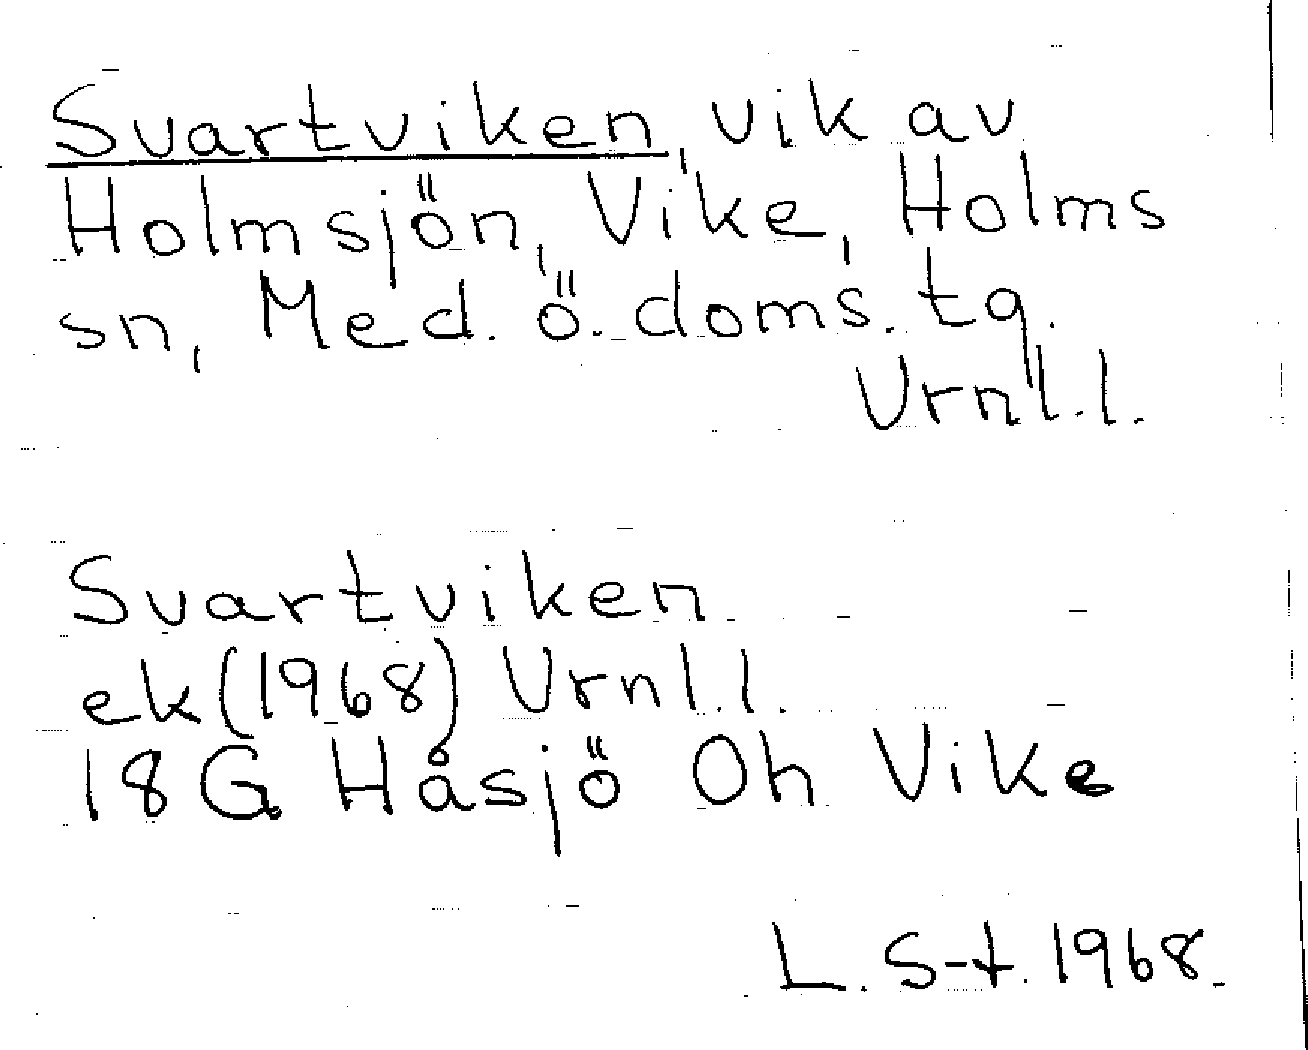 Svartviken, vik av
Holmsjön, Vike, Holms
sn, Med. ö. doms. tg.
Urnl.l.
Svartviken
ek(1968) Urnl.l.
18G Håsjö Oh Vike
L. S-t. 1968.